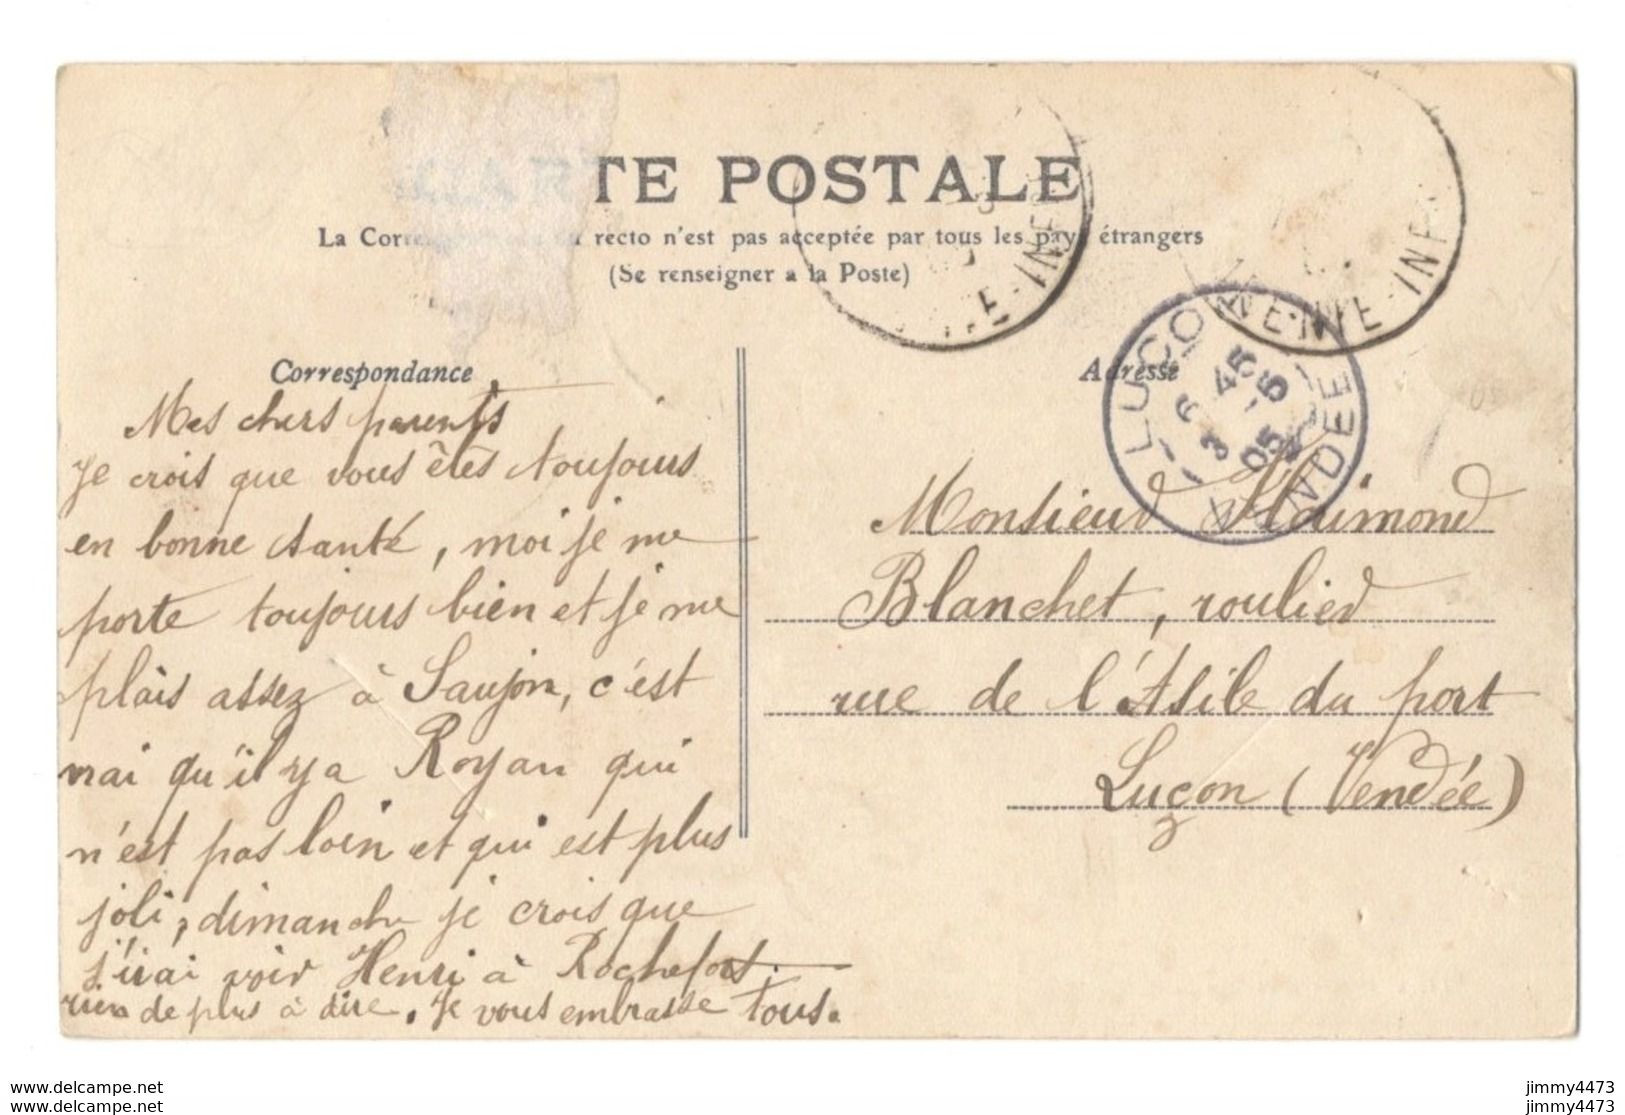 CARTE POSTALE
La Correspondance au recto n'est pas acceptée par tous les pays étrangers
(Se renseigner a la Poste)
INFRE
NTE-INFRE
Correspondance
Adresse
LUÇON
6 45
3 -5
05
VENDÉE
Mes chers parents
Je crois que vous êtes toujours
en bonne santé, moi je me
porte toujours bien et je me
plais assez à Saujon, c'est
vrai qu'il y a Royan qui
n'est pas loin et qui est plus
joli, dimanche je crois que
j'irai voir Henri à Rochefort.
rien de plus à dire. Je vous embrasse tous.
Monsieur Haimond
Blanchet, roulier
rue de l'Asile du port
Luçon (Vendée)
www.delcampe.net
www.delcampe.net
jimmy4473
jimmy4473